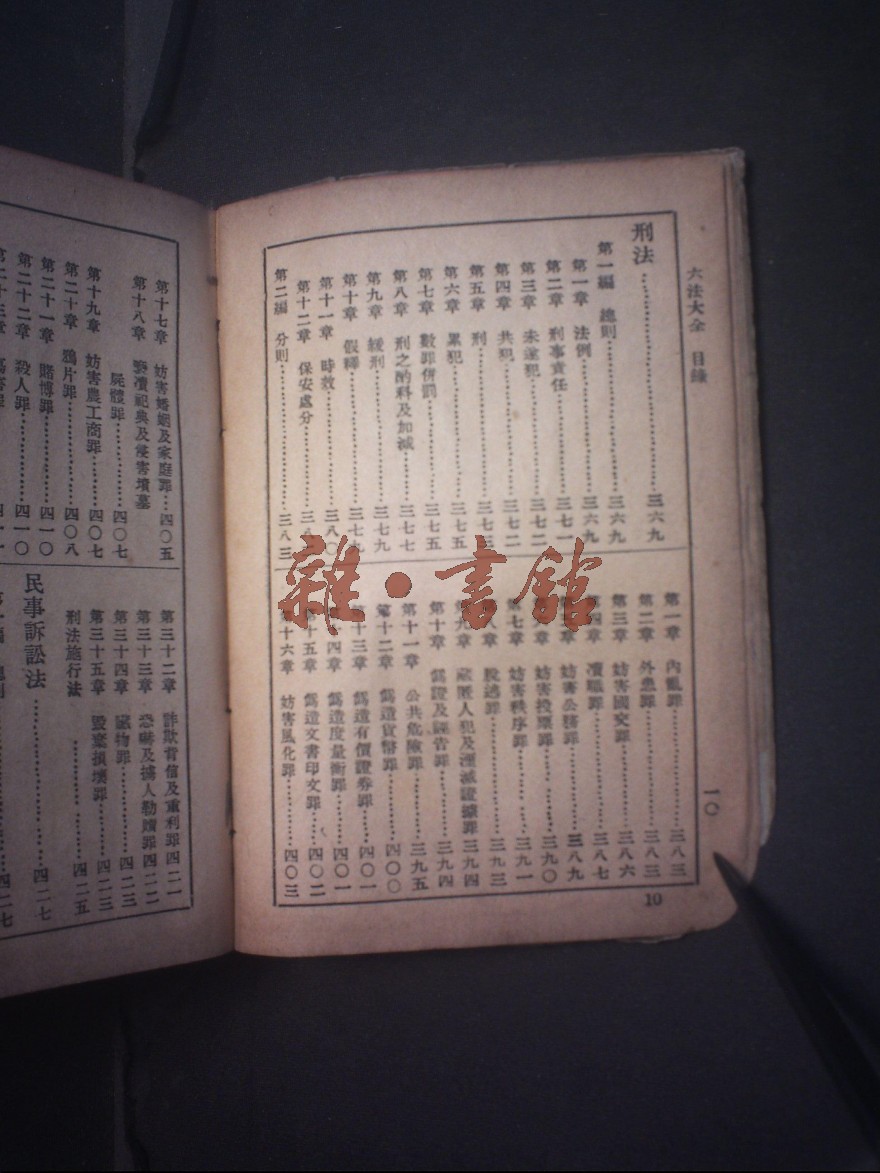 六法大全 目錄
一〇
刑法 三六九
第一編 總則 三六九
第一章 法例 三六九
第二章 刑事責任 三七一
第三章 未遂犯 三七二
第四章 共犯 三七二
第五章 刑 三七三
第六章 累犯 三七五
第七章 數罪併罰 三七五
第八章 刑之酌科及加減 三七七
第九章 緩刑 三七九
第十章 假釋 三七九
第十一章 時效 三八〇
第十二章 保安處分
第二編 分則 三八三
第一章 內亂罪 三八三
第二章 外患罪 三八三
第三章 妨害國交罪 三八六
瀆職罪 三八七
妨害公務罪 三八九
妨害投票罪 三九〇
第七章 妨害秩序罪 三九一
脫逃罪 三九三
藏匿人犯及湮滅證據罪 三九四
第十章 僞證及誣告罪 三九四
第十一章 公共危險罪 三九五
第十二章 僞造貨幣罪 四〇〇
第十三章 僞造有價證券罪 四〇一
僞造度量衡罪 四〇一
第十五章 僞造文書印文罪 四〇二
第十六章 妨害風化罪 四〇三
10
第十七章 妨害婚姻及家庭罪 四〇五
第十八章 褻瀆祀典及侵害墳墓
屍體罪 四〇七
第十九章 妨害農工商罪 四〇七
第二十章 鴉片罪 四〇八
第二十一章 賭博罪 四一〇
第二十二章 殺人罪 四一〇
第二十三章 傷害罪
第三十二章 詐欺背信及重利罪 四二一
第三十三章 恐嚇及擄人勒贖罪 四二二
第三十四章 贓物罪 四二三
第三十五章 毀棄損壞罪 四二三
刑法施行法 四二五
民事訴訟法 四二七
第一編 總則 四二七
雜·書館